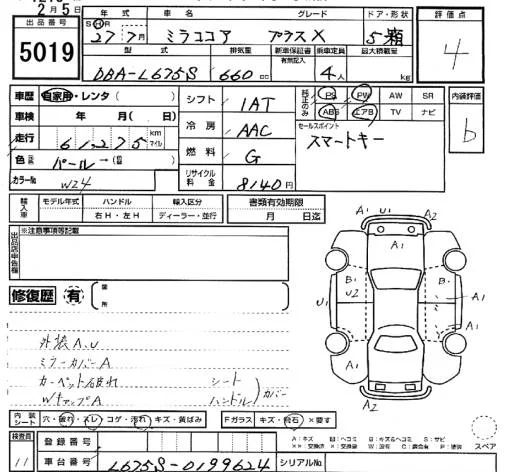 2月5日
出品番号
5019
年式 車名 グレード ドア・形状
S H 27 7月 ミラココア プラスX 5
型式 排気量 新車保証書 乗車定員 最大積載量
有無記入
DBA-L675S 660cc 4人 kg
評価点
4
車歴 自家用・レンタ( )
車検 年 月( 日)
走行 61,275 km マイル
色 パール→(
カラーNo W24
シフト 1AT
冷房 AAC
燃料 G
リサイクル料金 8140円
純正のみ PS PW AW SR
ABS エアB TV ナビ
セールスポイント
スマートキー
内装評価
b
輸入車 モデル年式 ハンドル 輸入区分
右H・左H ディーラー・並行
書類有効期限
月 日迄
出品店申告欄 ※注意事項等記載
修復歴 有 箇所
外装A、U
ミラーカバーA
カーペット破れ
WtアップA
シート
ハンドル カバー
A1 U1 A2
A1
B1 U2 B1
U1 A1
A1
A2
内装シート 穴・破れ・スレ・コゲ・汚れ・キズ・黄ばみ
Fガラス キズ・飛石・×要す
検査員 11
登録番号
車台番号 L675S-0199624
シリアルNo
A:キズ U:ヘコミ B:キズ&ヘコミ S:サビ
××:交換済 ×:交換要 W:波有 C:腐食 P:塗装
スペア